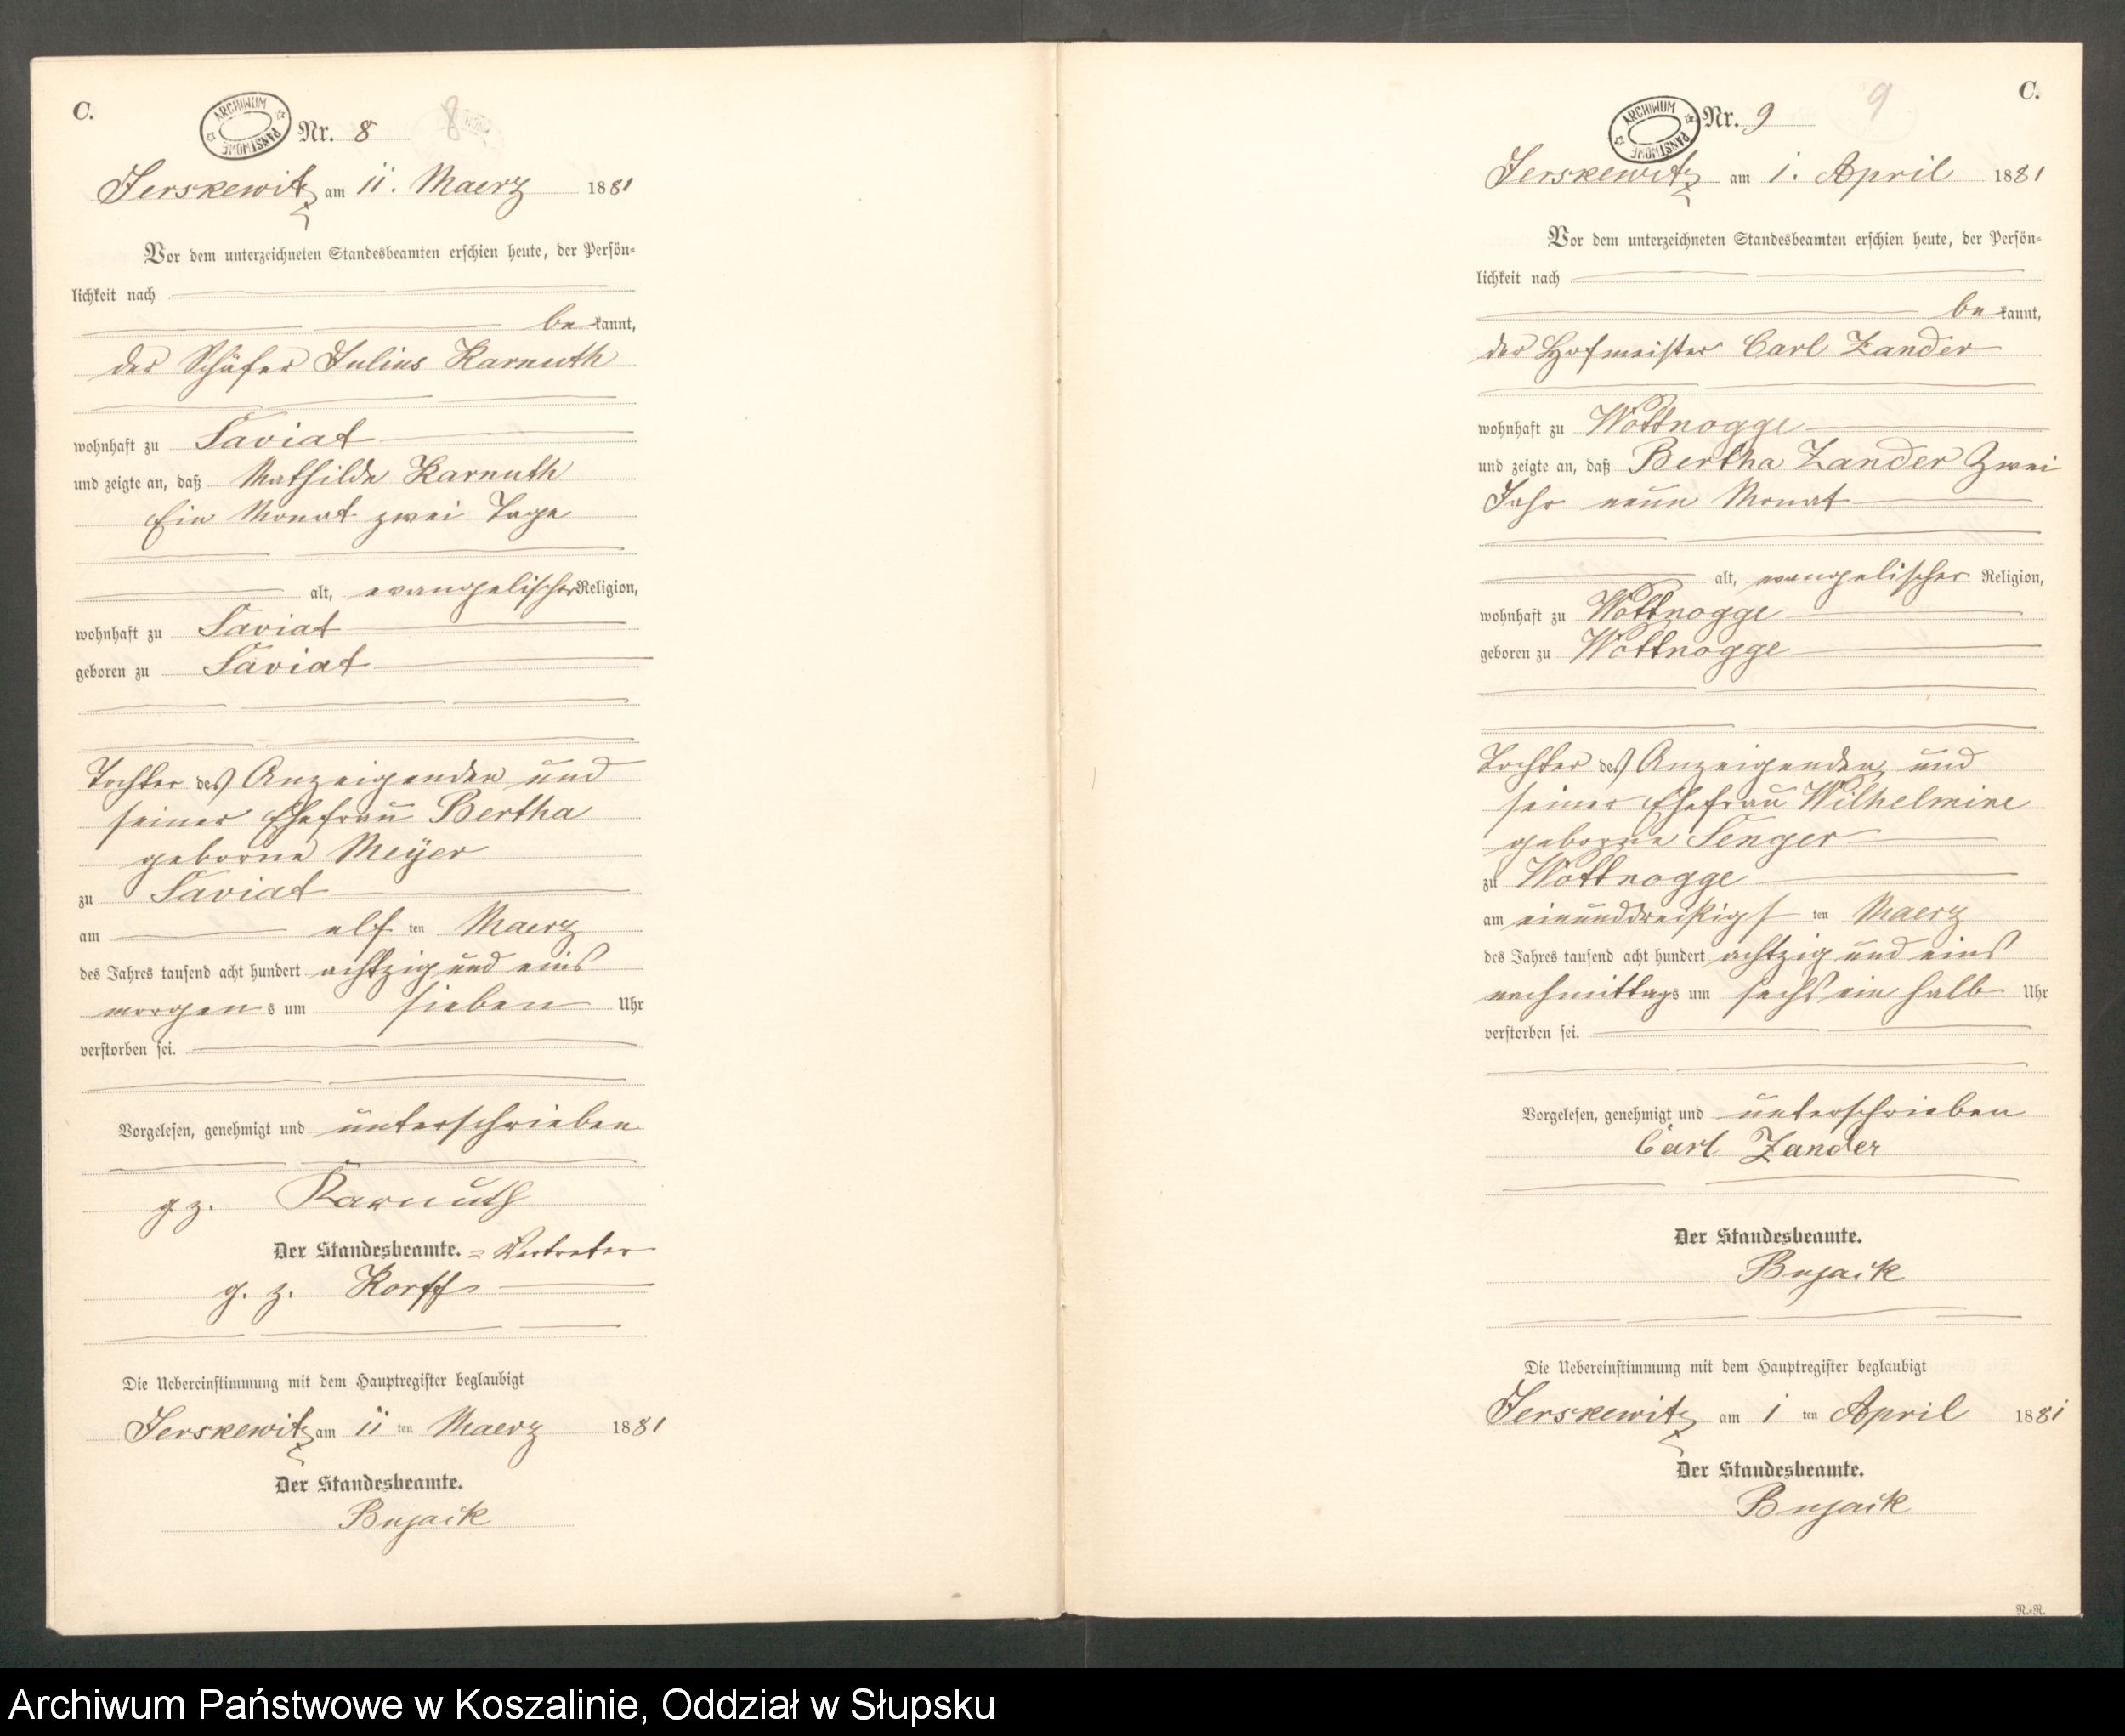 C.
ARCHIWUM PAŃSTWOWE
Nr. 8
8
Jerskewitz am 11. Maerz 1881
Vor dem unterzeichneten Standesbeamten erschien heute, der Persön-
lichkeit nach
bekannt,
der Schäfer Julius Karnuth
wohnhaft zu Saviat
und zeigte an, daß Mathilde Karnuth
Ein Monat zwei Tage
alt, evangelischer Religion,
wohnhaft zu Saviat
geboren zu Saviat
Tochter des Anzeigenden und
seiner Ehefrau Bertha
geborne Meyer
zu Saviat
am elf ten Maerz
des Jahres tausend acht hundert achtzig und eins
morgens um sieben Uhr
verstorben sei.
Vorgelesen, genehmigt und unterschrieben
gz. Karnuth
Der Standesbeamte. = Vertreter
g. z. Korff
Die Uebereinstimmung mit dem Hauptregister beglaubigt
Jerskewitz am 11 ten Maerz 1881
Der Standesbeamte.
Bujack
C.
ARCHIWUM PAŃSTWOWE
Nr. 9
9
Jerskewitz am 1. April 1881
Vor dem unterzeichneten Standesbeamten erschien heute, der Persön-
lichkeit nach
bekannt,
der Hofmeister Carl Zander
wohnhaft zu Wottnogge
und zeigte an, daß Bertha Zander Zwei
Jahr neun Monat
alt, evangelischer Religion,
wohnhaft zu Wottnogge
geboren zu Wottnogge
Tochter des Anzeigenden und
seiner Ehefrau Wilhelmine
geborne Senger
zu Wottnogge
am einunddreißigs ten Maerz
des Jahres tausend acht hundert achtzig und eins
nachmittags um sechs ein halb Uhr
verstorben sei.
Vorgelesen, genehmigt und unterschrieben
Carl Zander
Der Standesbeamte.
Bujack
Die Uebereinstimmung mit dem Hauptregister beglaubigt
Jerskewitz am 1 ten April 1881
Der Standesbeamte.
Bujack
R.-R.
Archiwum Państwowe w Koszalinie, Oddział w Słupsku